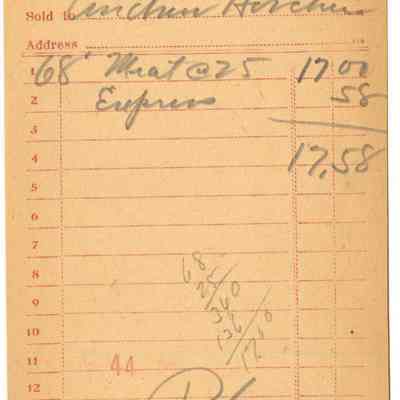 Sold to Anchor Kitchen
Address
1 68' Meat @ 25 17 00
2 Express 58
3
4 17,58
5
6
7
8 68
25
9 340
10 136
1700
11 44
12